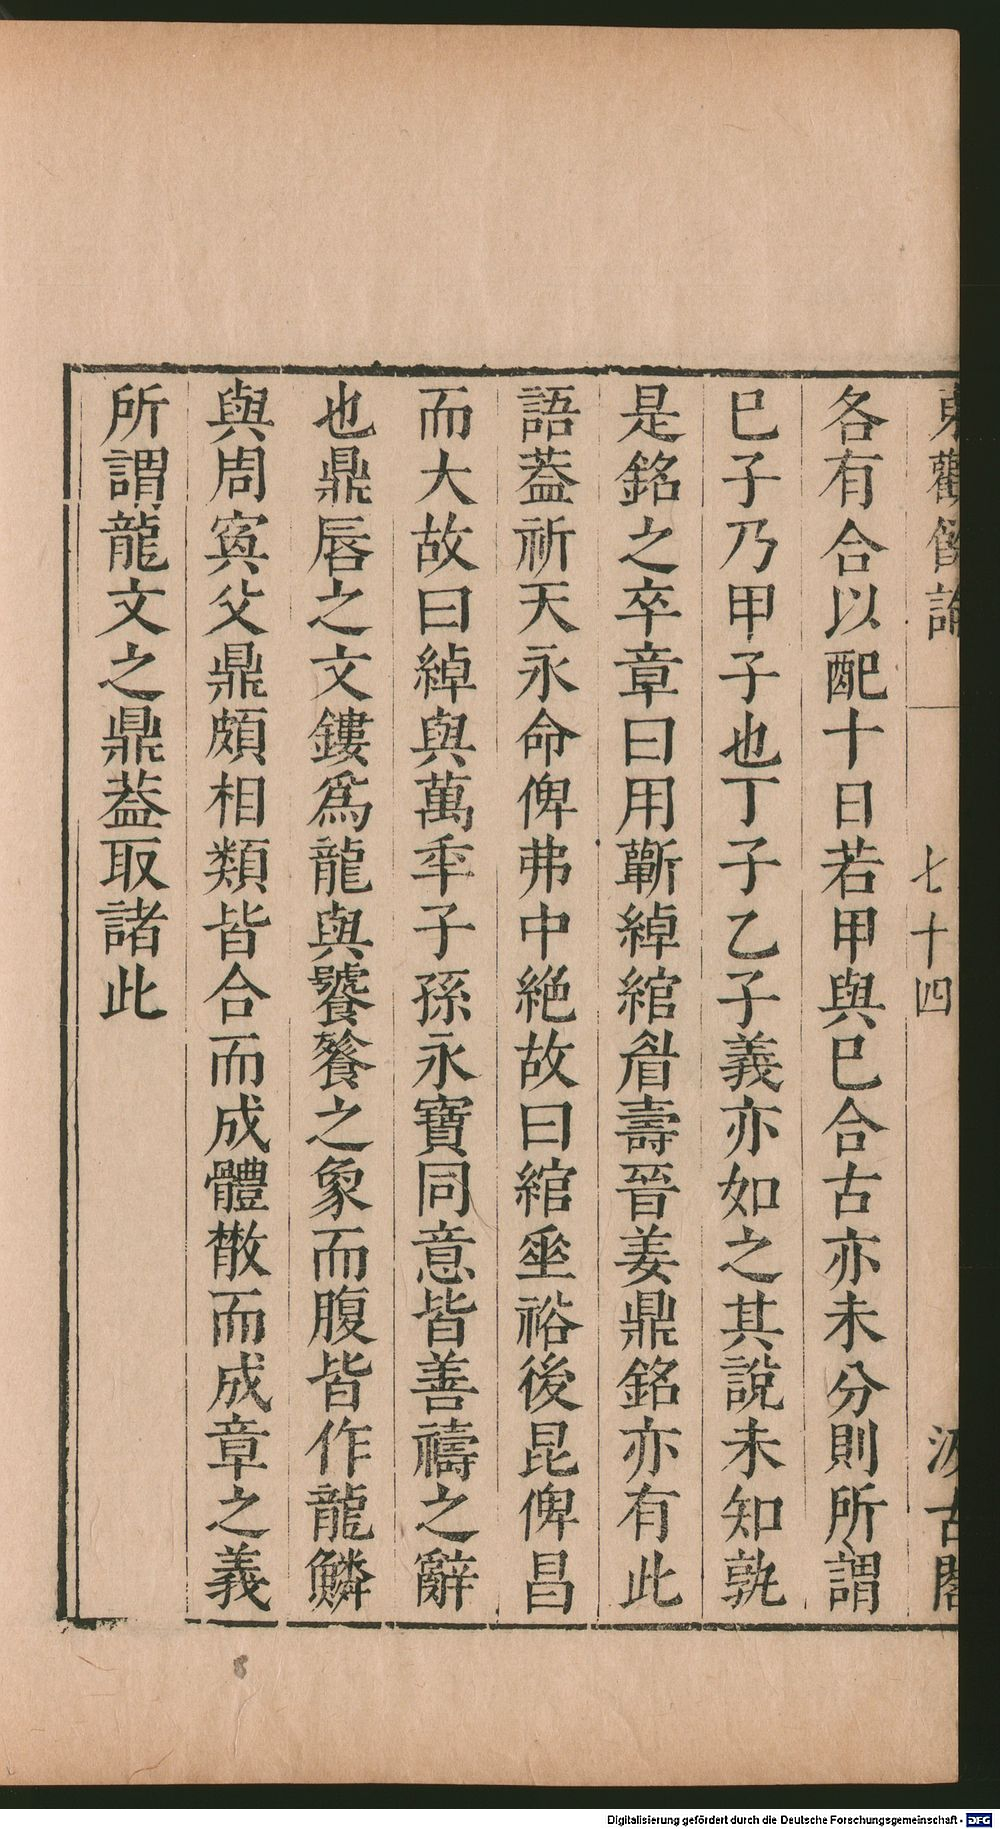 東觀餘論
七十四
汲古閣
各有合以配十日若甲與巳合古亦未分則所謂
巳子乃甲子也丁子乙子義亦如之其說未知孰
是銘之卒章曰用蘄綽綰眉壽晉姜鼎銘亦有此
語葢祈天永命俾弗中絶故曰綰埀裕後昆俾昌
而大故曰綽與萬秊子孫永寶同意皆善禱之辭
也鼎唇之文鏤爲龍與饕餮之象而腹皆作龍鱗
與周寅父鼎頗相類皆合而成體散而成章之義
所謂龍文之鼎葢取諸此
8
Digitalisierung gefördert durch die Deutsche Forschungsgemeinschaft - DFG